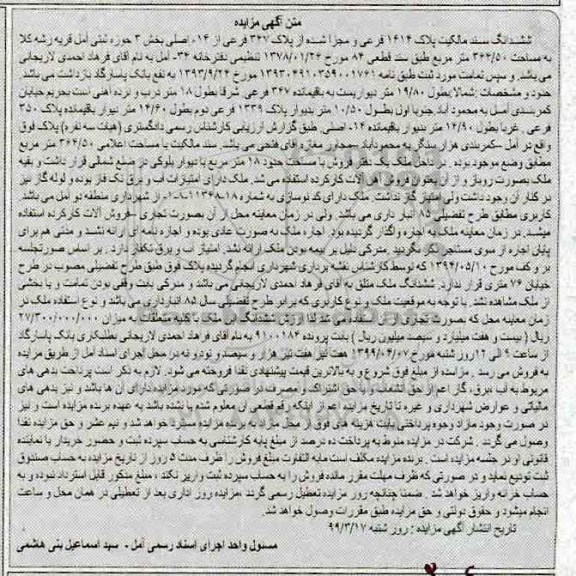 متن آگهی مزایده
ششدانگ سند مالکیت پلاک ۱۶۱۴ فرعی و مجزا شده از پلاک ۳۴۷ فرعی از ۰۱۴ اصلی بخش ۳ حوزه ثبتی آمل قریه رشه کلا
به مساحت ۳۶۴/۵۰ متر مربع طبق سند قطعی ۸۴ مورخ ۱۳۷۸/۰۱/۲۶ تنظیمی دفترخانه ۰۳۴ آمل به نام آقای فرهاد احمدی لاریجانی
می باشد و سپس تمامت مورد ثبت طبق نامه ۱۳۹۳۰۴۹۱۰۳۵۹۰۰۱۷۶۱ مورخ ۱۳۹۳/۹/۲۴ به نفع بانک پاسارگاد بازداشت می باشد.
حدود و مشخصات :شمالا بطول ۱۹/۸۰ متر دیواریست به باقیمانده ۳۴۷ فرعی. شرقا بطول ۱۸ متر درب و نرده آهنی است بحریم خیابان
کمربندی آمل به محمود آباد.جنوبا اول بطول ۱۰/۵۰ متر بدیوار پلاک ۱۳۳۹ فرعی دوم بطول ۱۴/۶۰ متر دیوار باقیمانده پلاک ۳۵۰
فرعی . غربا بطول ۱۴/۹۰ متر بدیوار باقیمانده ۰۱۴ اصلی. طبق گزارش ارزیابی کارشناس رسمی دادگستری (هیات سه نفره) پلاک فوق
واقع در آمل -کمربندی هزار سنگر به محمودآباد -مجاور مغازه آقای فتحی می باشد. سند مالکیت با مساحت اعلامی ۳۶۴/۵۰ متر مربع
مطابق وضع موجود بوده . در داخل ملک یک دفتر فروش با مساحت حدود ۱۸ متر مربع با دیوار بلوکی در ضلع شمالی قرار داشت و بقیه
ملک بصورت روباز و از آن بعنوان فروش آهن آلات کارکرده استفاده می شد. ملک دارای امتیازات آب و برق تک فاز بوده و لوله گاز نیز
در کنار آن وجود داشت ولی امتیاز گاز نداشت. ملک دارای کد نوسازی به شماره از شهرداری منطقه دو آمل می باشد.
کاربری مطابق طرح تفصیلی ۸۵ انبار داری می باشد ولی در زمان معاینه محل از آن بصورت تجاری -فروش آلات کارکرده استفاده
میشد. در زمان معاینه ملک به اجاره واگذار گردیده بود. اجاره ملک به صورت عادی بوده و اجاره نامه ای ارائه نشد و مدتی هم برای
پایان اجاره از سوی مستاجر ذکر نگردید. مدرکی دلیل بر بیمه بودن ملک ارائه نشد. امتیاز آب و برق تکفاز دارد . بر اساس صورتجلسه
بر و کف مورخ ۱۳۹۴/۰۵/۱۰ که توسط کارشناس نقشه برداری شهرداری انجام گردیده پلاک فوق طبق طرح تفصیلی مصوب در طرح
خیابان ۷۶ متری قرار ندارد. ششدانگ ملک متعلق به آقای فرهاد احمدی لاریجانی می باشد و مدرکی بابت وقفی بودن تمامت و یا بخشی
از ملک مشاهده نشد. با توجه به موقعیت ملک و نوع کاربری که برابر طرح تفضیلی سال ۸۵ انبارداری می باشد و نوع استفاده ملک در
زمان معاینه محل که بصورت تجاری از آن استفاده می شد لذا ارزش ششدانگ این ملک با کلیه متعلقات به میزان ۲۷/۳۰۰/۰۰۰/۰۰۰
ریال ( بیست و هفت میلیارد و سیصد میلیون ریال ) بابت پرونده ۹۱۰۰۱۸۴ به نام آقای فرهاد احمدی لاریجانی بطلبکاری بانک پاسارگاد
از ساعت ۹ الی ۱۲ روز شنبه مورخ ۱۳۹۹/۰۴/۰۷ هفت تیر هفت تیر هزار و سیصد و نود و نه در محل اجرای اسناد آمل از طریق مزایده
به فروش می رسد . مزایده از مبلغ فوق شروع و به بالاترین قیمت پیشنهادی نقدا فروخته می شود. لازم به ذکر است پرداخت بدهی های
مربوط به آب ،برق ، گاز اعم از حق انشعاب و یا حق اشتراک و مصرف در صورتی که مورد مزایده دارای آن ها باشد و نیز بدهی های
مالیاتی و عوارض شهرداری و غیره تا تاریخ مزایده اعم از اینکه رقم قطعی آن معلوم شده یا نشده باشد به عهده برنده مزایده است و نیز
در صورت وجود مازاد وجوه پرداختی بابت هزینه های فوق از محل مازاد به برنده مزایده مسترد خواهد شد و نیم عشر و حق مزایده نقدا
وصول می گردد . شرکت در مزایده منوط به پرداخت ده درصد از مبلغ پایه کارشناسی به حساب سپرده ثبت و حضور خریدار یا نماینده
قانونی او در جلسه مزایده است . برنده مزایده مکلف است مابه التفاوت مبلغ فروش را ظرف مدت ۵ روز از تاریخ مزایده به حساب صندوق
ثبت تودیع نماید و در صورتی که ظرف مهلت مقرر مانده فروش را به حساب سپرده ثبت واریز نکند ، مبلغ مذکور قابل استرداد نبوده و به
حساب خزانه واریز خواهد شد . ضمنا چنانچه روز مزایده تعطیل رسمی گردد ،مزایده روز اداری بعد از تعطیلی در همان محل و ساعت
انجام میشود و حقوق دولتی و حق مزایده طبق مقررات وصول خواهد شد.
تاریخ انتشار آگهی مزایده : روز شنبه ۹۹/۳/۱۷
مسئول واحد اجرای اسناد رسمی آمل - سید اسماعیل بنی هاشمی